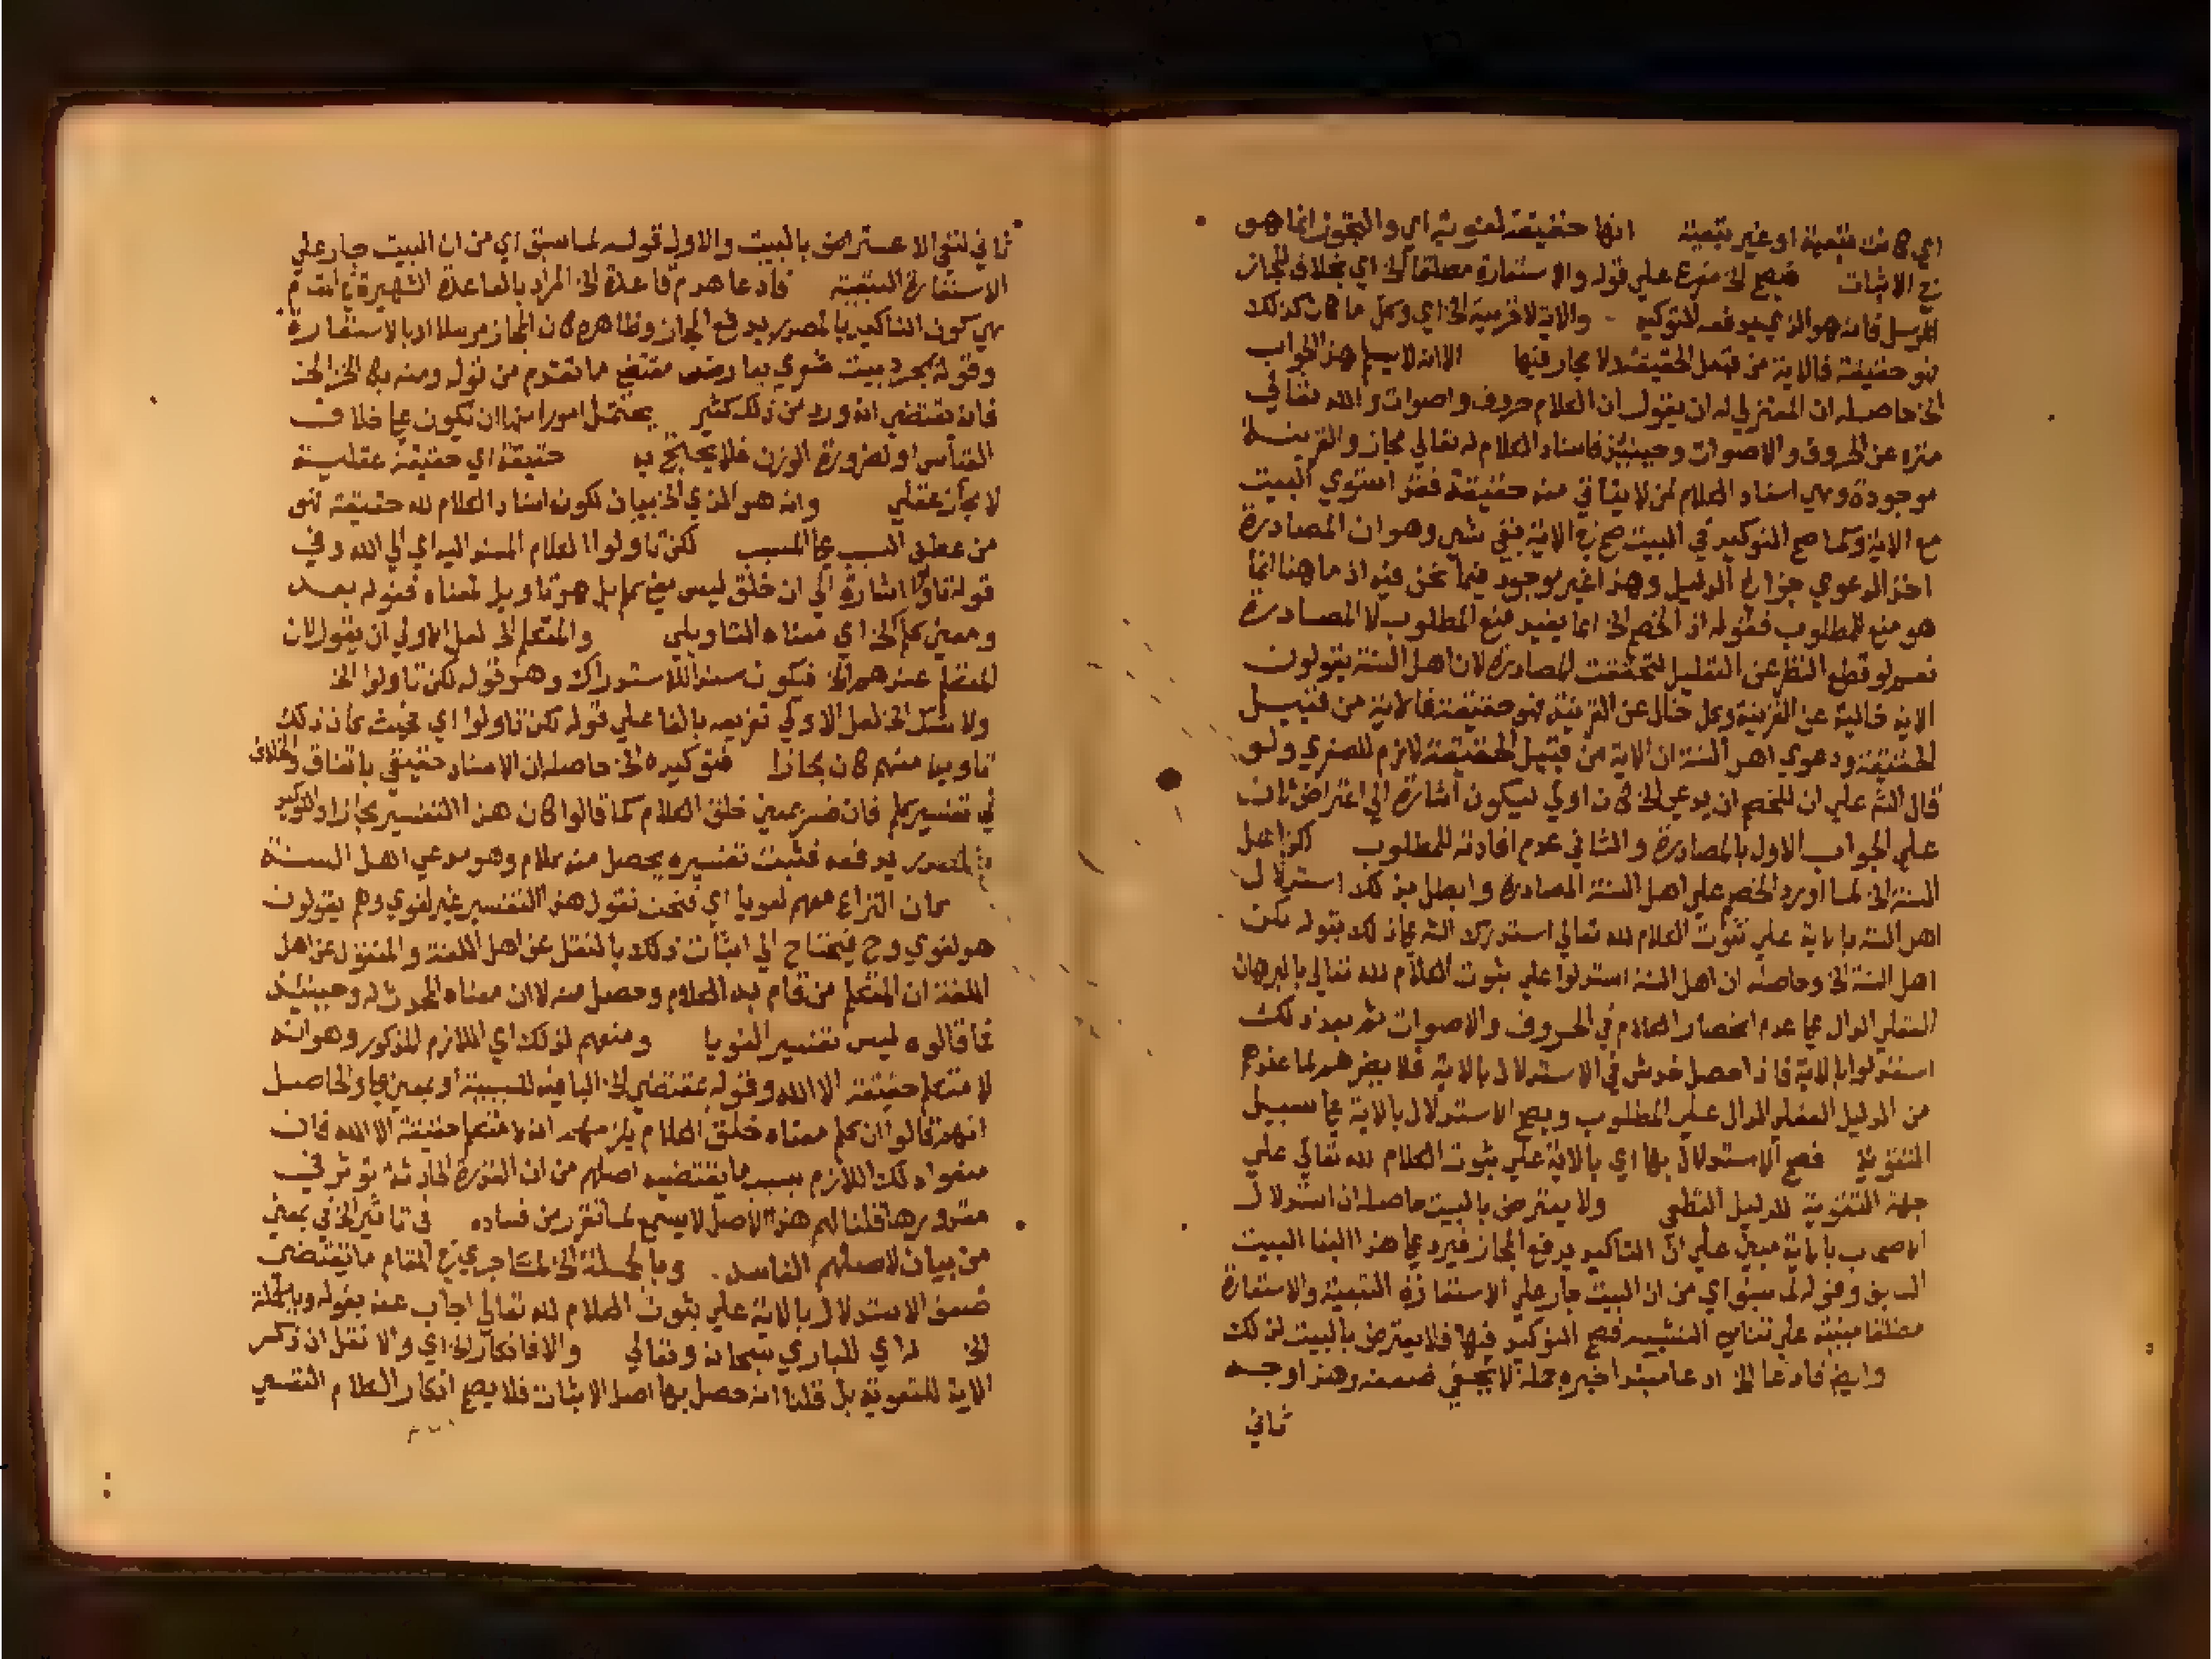 اي كانت تبعية او غير تبعية انها حقيقة لغوية اي والتجوز انما هو
في الاثبات فيصح الخ مفرع علي قوله والاستعارة مطلقا الخ اي بخلاف المجاز
المرسل فانه هو الذي يدفعه التوكيد والاية لا قرينة الخ اي وكل ما كان كذلك
فهو حقيقة فالاية من قبيل الحقيقة لا مجاز فيها الا انه لا يسلم هذا الجواب
الخ حاصله ان المعتزلي له ان يقول ان الكلام حروف واصوات والله تعالي
منزه عن الحروف والاصوات وحينئذ فاسناد الكلام له تعالي مجاز والقرينة
موجودة وهي اسناد الكلام لمن لا يتأتي منه حقيقة فقد استوي البيت
مع الاية وكما صح التوكيد في البيت صح في الاية بقي شي وهو ان المصادرة
اخذ الدعوي جزءا من الدليل وهذا غير موجود فيما نحن فيه اذ ما هنا انما
هو منع للمطلوب فقوله اذ الخصم الخ انما يفيد منع المطلوب لا المصادرة
نعم لو قطع النظر عن التعليل لتحققت المصادرة لان اهل السنة يقولون
الاية خالية عن القرينة وكل خال عن القرينة فهو حقيقة فالاية من قبيل
الحقيقة ودعوي اهل السنة ان الاية من قبيل الحقيقة لازم للصغري ولو
قال الش علي ان للخصم ان يدعي الخ كان اولي ليكون اشارة الي اعتراض ثان
علي الجواب الاول بالمصادرة والثاني عدم افادته للمطلوب لكن اهل
السنة الخ لما اورد الخصم علي اهل السنة المصادرة وابطل بذلك استدلال
اهل السنة بالاية علي ثبوت الكلام لله تعالي استدرك الش علي ذلك بقوله لكن
اهل السنة الخ وحاصله ان اهل السنة استدلوا علي ثبوت الكلام لله تعالي بالبرهان
العقلي الدال علي عدم انحصار الكلام في الحروف والاصوات ثم بعد ذلك
استدلوا بالاية فاذا حصل خدش في الاستدلال بالاية فلا يضرهم لما عندهم
من الدليل العقلي الدال علي المطلوب ويصح الاستدلال بالاية علي سبيل
التقوية فصح الاستدلال بها اي بالاية علي ثبوت الكلام لله تعالي علي
جهة التقوية للدليل القطعي ولا يعترض بالبيت حاصله ان استدلال
الاصحاب بالاية مبني علي ان التاكيد يرفع المجاز فيرد علي هذا البنا البيت
السابق وقوله لما سبق اي من ان البيت جار علي الاستعارة التبعية والاستعارة
مطلقا مبنية علي تناسي التشبيه فصح التوكيد فيها فلا يعترض بالبيت لذلك
وايضا فادعا الخ ادعا مبتدا خبره جملة لا يخفي ضعفه وهذا وجه
ثاني
ثاني لنفي الاعتراض بالبيت والاول قوله لما سبق اي من ان البيت جار علي
الاستعارة التبعية فادعا هدم قاعدة الخ المراد بالقاعدة الشهيرة في
هي كون التاكيد بالمصدر يدفع المجاز وظاهره كان المجاز مرسلا او بالاستعارة
وقوله بمجرد بيت مقتضي ما تقدم من قوله ومنه بكي الخز الخ
فانه يقتضي انه ورد من ذلك كثير يحتمل امورا منها ان يكون علي خلاف
القياس او لضرورة الوزن فلا يحتج به حقيقة اي حقيقة عقلية
لا مجاز عقلي وانه هو الذي الخ بيان لكون اسناد الكلام لله حقيقة فهو
من عطف السبب علي المسبب لكن تاولوا الكلام المسند اليه اي الي الله وفي
قوله تاولوا اشارة الي ان خلق ليس معني كلم بل هو تاويل لمعناه فقوله بعد
ومعني كلم الخ اي معناه التاويلي والمتكلم الخ لعل الاولي ان يقول لان
المتكلم عندهم الخ فيكون سندا للاستدراك وهو قوله لكن تاولوا الخ
ولا شك الخ لعل الاولي تفريعه بالفا علي قوله لكن تاولوا اي بحيث كان ذلك
تاويلا منهم كان مجازا فتوكيده الخ حاصله ان الاسناد حقيقي باتفاق والخلاف
في تفسير كلم فان فسر بمعني خلق الكلام كما قالوا كان هذا التفسير مجازا والتوكيد
بالمصدر يدفعه فثبت تفسيره بحصل منه كلام وهو مدعي اهل السنة
كان النزاع معهم لغويا اي فنحن نقول هذا التفسير غير لغوي وهم يقولون
هو لغوي وح فيحتاج الي اثبات ذلك بالنقل عن اهل اللغة والمنقول عن اهل
اللغة ان المتكلم من قام به الكلام وحصل منه لا ان معناه المحدث له وحينئذ
فما قالوه ليس تفسيرا لغويا ومنعهم لذلك اي اللازم المذكور وهو انه
لا متكلم حقيقة الا الله وقوله بمقتضي الخ البا فيه للسببية او بمعني علي والحاصل
انهم قالوا ان كلم معناه خلق الكلام يلزمهم انه لا متكلم حقيقة الا الله فان
منعوا ذلك اللازم بسبب ما يقتضيه اصلهم من ان القدرة الحادثة توثر في
مقدورها قلنا لهم هذا الاصل لا يسمع لما تقرر من فساده في تاثير الخ في بمعني
من بيان لاصلهم الفاسد وبالجملة الخ لما جري في المقام ما يقتضي
ضعف الاستدلال بالاية علي ثبوت الكلام لله تعالي اجاب عنه بقوله وبالجملة
الخ له اي للباري سبحانه وتعالي والا فانكار الخ اي والا نقل ان ذكر
الاية للتقوية بل قلنا انه حصل بها اصل الاثبات فلا يصح انكار الكلام النفسي